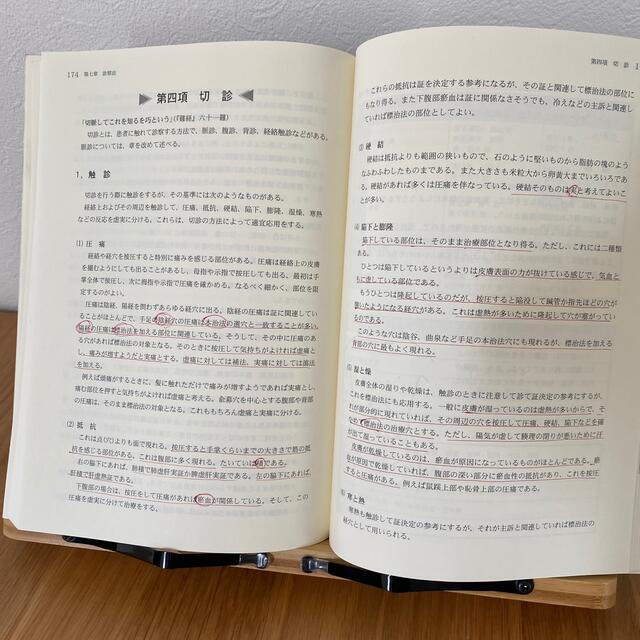 174 第七章 診察法
第四項 切 診
「切脈してこれを知るを巧という」(『難経』六十一難)
切診とは、患者に触れて診察する方法で、脈診、腹診、背診、経絡触診などがある。
脈診については、章を改めて述べる。
1、触 診
切診を行う際に触診をするが、その基準には次のようなものがある。
経絡上およびその周辺を触診して、圧痛、抵抗、硬結、陥下、膨隆、湿燥、寒熱
などの反応を虚実に分ける。これらは、切診の方法によって適宜応用をする。
(1) 圧 痛
経絡や経穴を按圧すると特別に痛みを感じる部位がある。圧痛は経絡上の皮膚
を撮むようにしても出ることがあるし、母指や示指で按圧しても出る。最初は手
掌全体で按圧し、次に拇指や示指で圧痛を確かめる。なるべく細かく、部位を限
定するのがよい。
圧痛は陰経、陽経を問わずあらゆる経穴に出る。陰経の圧痛は証に関連してい
ることがほとんどで、手足の陰経穴の圧痛は本治法の選穴と一致することが多い。
陽経の圧痛は標治法を加える部位に関連している。そうして、その中に圧痛の
ある穴があれば標治法の対象となる。そのときに按圧して気持ちがよければ虚痛と
し、痛みが増すようだと実痛とする。虚痛に対しては補法、実痛に対しては瀉法
を加える。
例えば頭痛がするときに、髪に触れただけで痛みが増すようであれば実痛とし、
痛む部位を押すと気持ちがよければ虚痛と考える。兪募穴を中心とする腹部や背部
の圧痛は、そのまま標治法の対象となる。これももちろん虚痛と実痛に分ける。
(2) 抵 抗
これは点びりよりも面で現れる。按圧すると手掌くらいまでの大きさで筋の抵
抗を感じる部位がある。これは腹部に多く現れる。たいていは積である。
右の脇下にあれば、肺積で脾虚肝実証か脾虚肝実証である。左の脇下にあれば、
肝積で肝虚熱証である。
下腹部の場合は、按圧をして圧痛があれば瘀血が関係している。そして、この
圧痛を虚実に分けて治療をする。
第四項 切 診
これらの抵抗は証を決定する参考になるが、その証と関連して標治法の部位に
もなり得る。また下腹部瘀血は証に関係なさそうでも、冷えなどの主訴と関連して
いれば標治法の部位としてよい。
(3) 硬 結
硬結は抵抗よりも範囲の狭いもので、石のように堅いものから脂肪の塊のよう
なふわふわしたものまである。また大きさも米粒大から卵黄大までいろいろであ
る。硬結があれば多くは圧痛を伴なっている。硬結そのものは実と考えてよいこ
とが多い。
(4) 陥下と膨隆
陥下している部位は、そのまま治療部位となり得る。ただし、これには二種類
ある。
ひとつは陥下しているというよりは皮膚表面の力が抜けている感じで、気血と
もに虚している部位である。
もうひとつは隆起しているのだが、按圧すると陥没して鍼管か指先ほどの穴が
開いたようになる経穴がある。これは虚熱が多いために隆起して穴が塞がってい
るのである。
このような穴は陰谷、曲泉など手足の本治法穴にも現れるが、標治法穴を加える
背部の穴に最もよく現れる。
(5) 湿と燥
皮膚全体の湿りや乾燥は、触診のときに注意して診て証決定の参考にするが、
これは標治法にも応用する。一般に皮膚が湿っているのは虚熱が多いからで、そ
れが部分的に現れていれば、その周辺の穴を按圧して圧痛、硬結、陥下などを確
かめて標治法の治療穴とすることもある。ただし、陽気が虚して腠理の閉りが悪いために汗
が出て湿っていることもある。
皮膚が乾燥しているのは、瘀血が原因になっているものがほとんどである。瘀
血が原因で乾燥していれば、腹部の深い部分に瘀血性の抵抗があり、これを按圧
すると圧痛がある。例えば鼠蹊上部や恥骨上部の圧痛である。
(6) 寒と熱
寒熱も触診して証決定の参考にするが、それが主訴と関連していれば標治法の
経穴として用いられる。